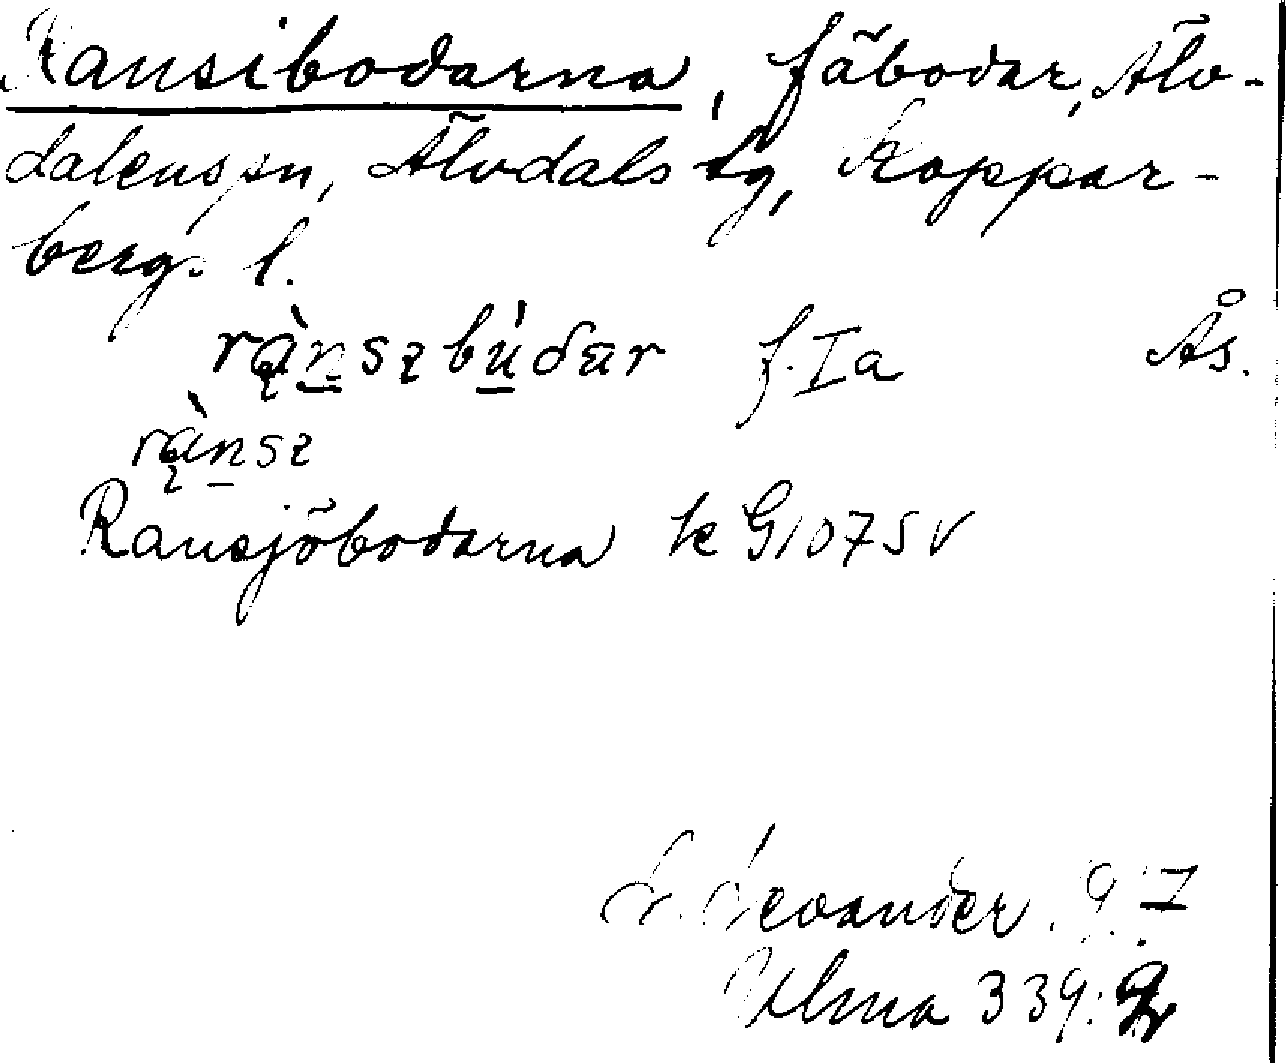 Ransibodarna, fäbodar, Älv-
dalens sn, Älvdals tg, Koppar-
bergs l.
rą̀nsɩbúdar f. Ia Ås.
rą̀nsɩ
Ransjöbodarna k G 107 SV
L. Levander. 9.7
Ulma 339: